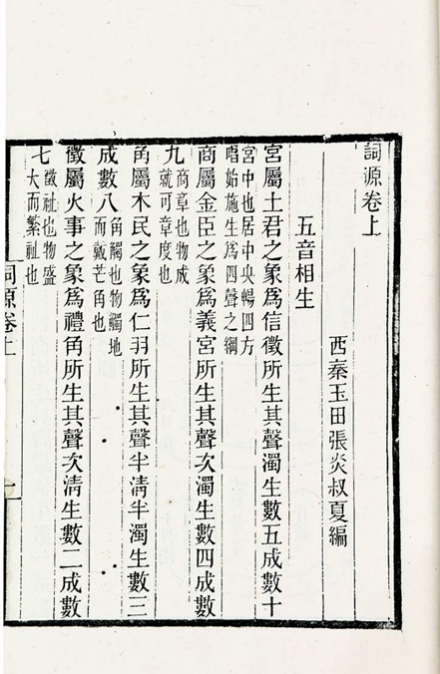 詞源卷上
西秦玉田張炎叔夏編
五音相生
宮屬土君之象爲信徵所生其聲濁生數五成數十
宮中也居中央暢四方
唱始施生爲四聲之綱
商屬金臣之象爲義宮所生其聲次濁生數四成數
九
商章也物成
就可章度也
角屬木民之象爲仁羽所生其聲半清半濁生數三
成數八
角觸也物觸地
而戴芒角也
徵屬火事之象爲禮角所生其聲次清生數二成數
七
徵祉也物盛
大而繁祉也
詞源卷上